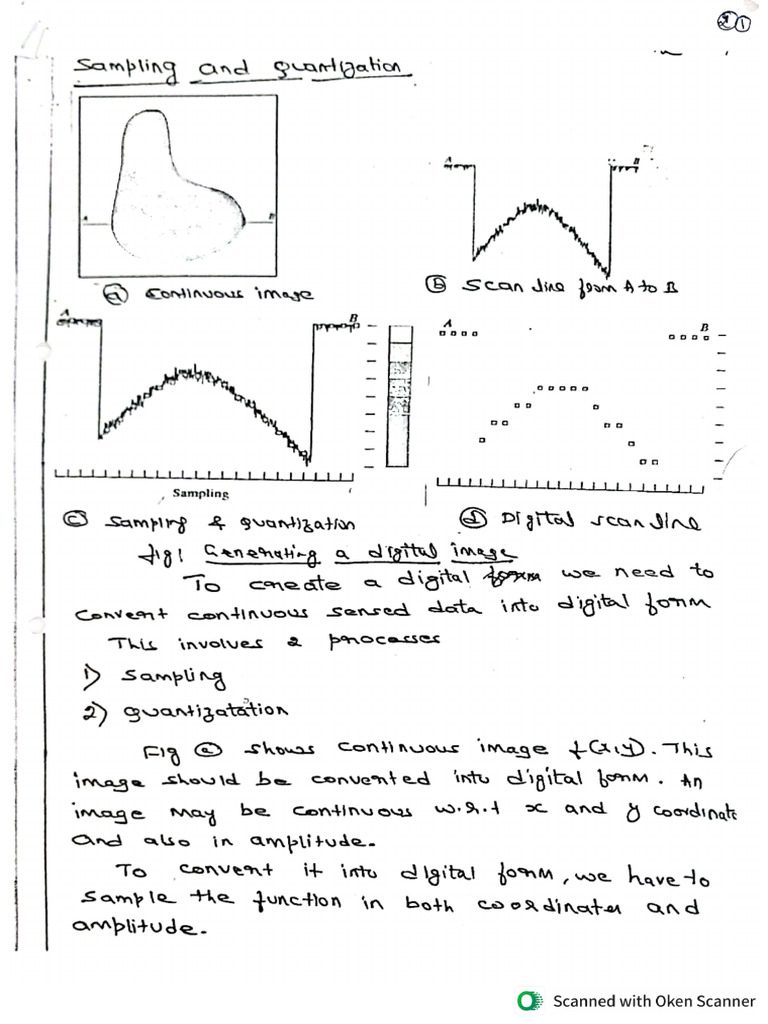 2 1
Sampling and quantization
A B
A B
(a) Continuous image
(b) Scan line from A to B
A B
A B
Sampling
(c) Sampling & quantization
(d) Digital scan line
fig: Generating a digital image
To create a digital form we need to
convert continuous sensed data into digital form
This involves 2 processes
1) Sampling
2) quantizatation
Fig (a) shows continuous image f(x,y). This
image should be converted into digital form. An
image may be continuous w.r.t x and y coordinate
and also in amplitude.
To convert it into digital form, we have to
sample the function in both coordinates and
amplitude.
Scanned with Oken Scanner